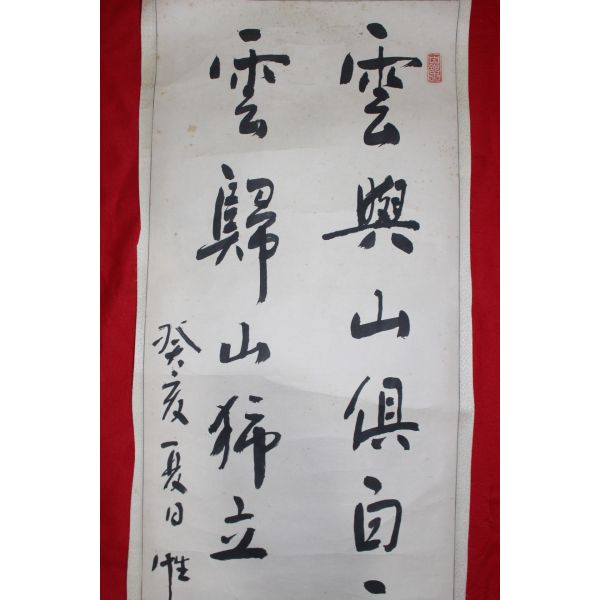 雲與山俱白
雲歸山獨立
癸亥夏日 惟